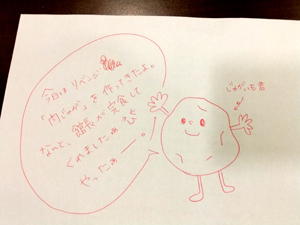 今日はリベンジ
「肉じゃが」を作ってきたよ。
なんと、館長が完食して
くれましたぁ
やったぁー!
じゃがいも君